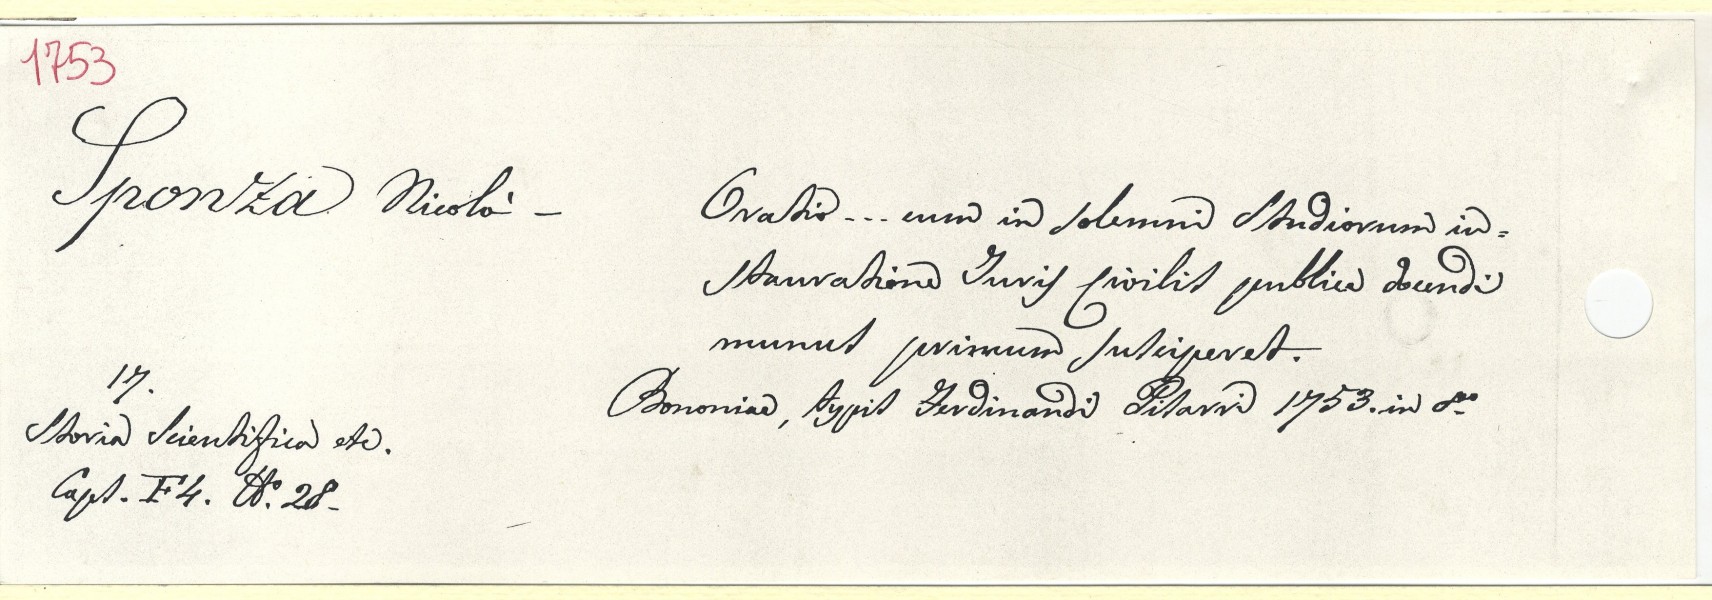 1753
Sponza Nicolò - Oratio ... cum in solemni Studiorum in=
stauratione Juris Civilis publice docendi
munus primum susciperet.
Bononiae, typis Ferdinandi Pisarri 1753. in 8.°
17.
Storia Scientifica etc.
Caps. F4. N.° 28-